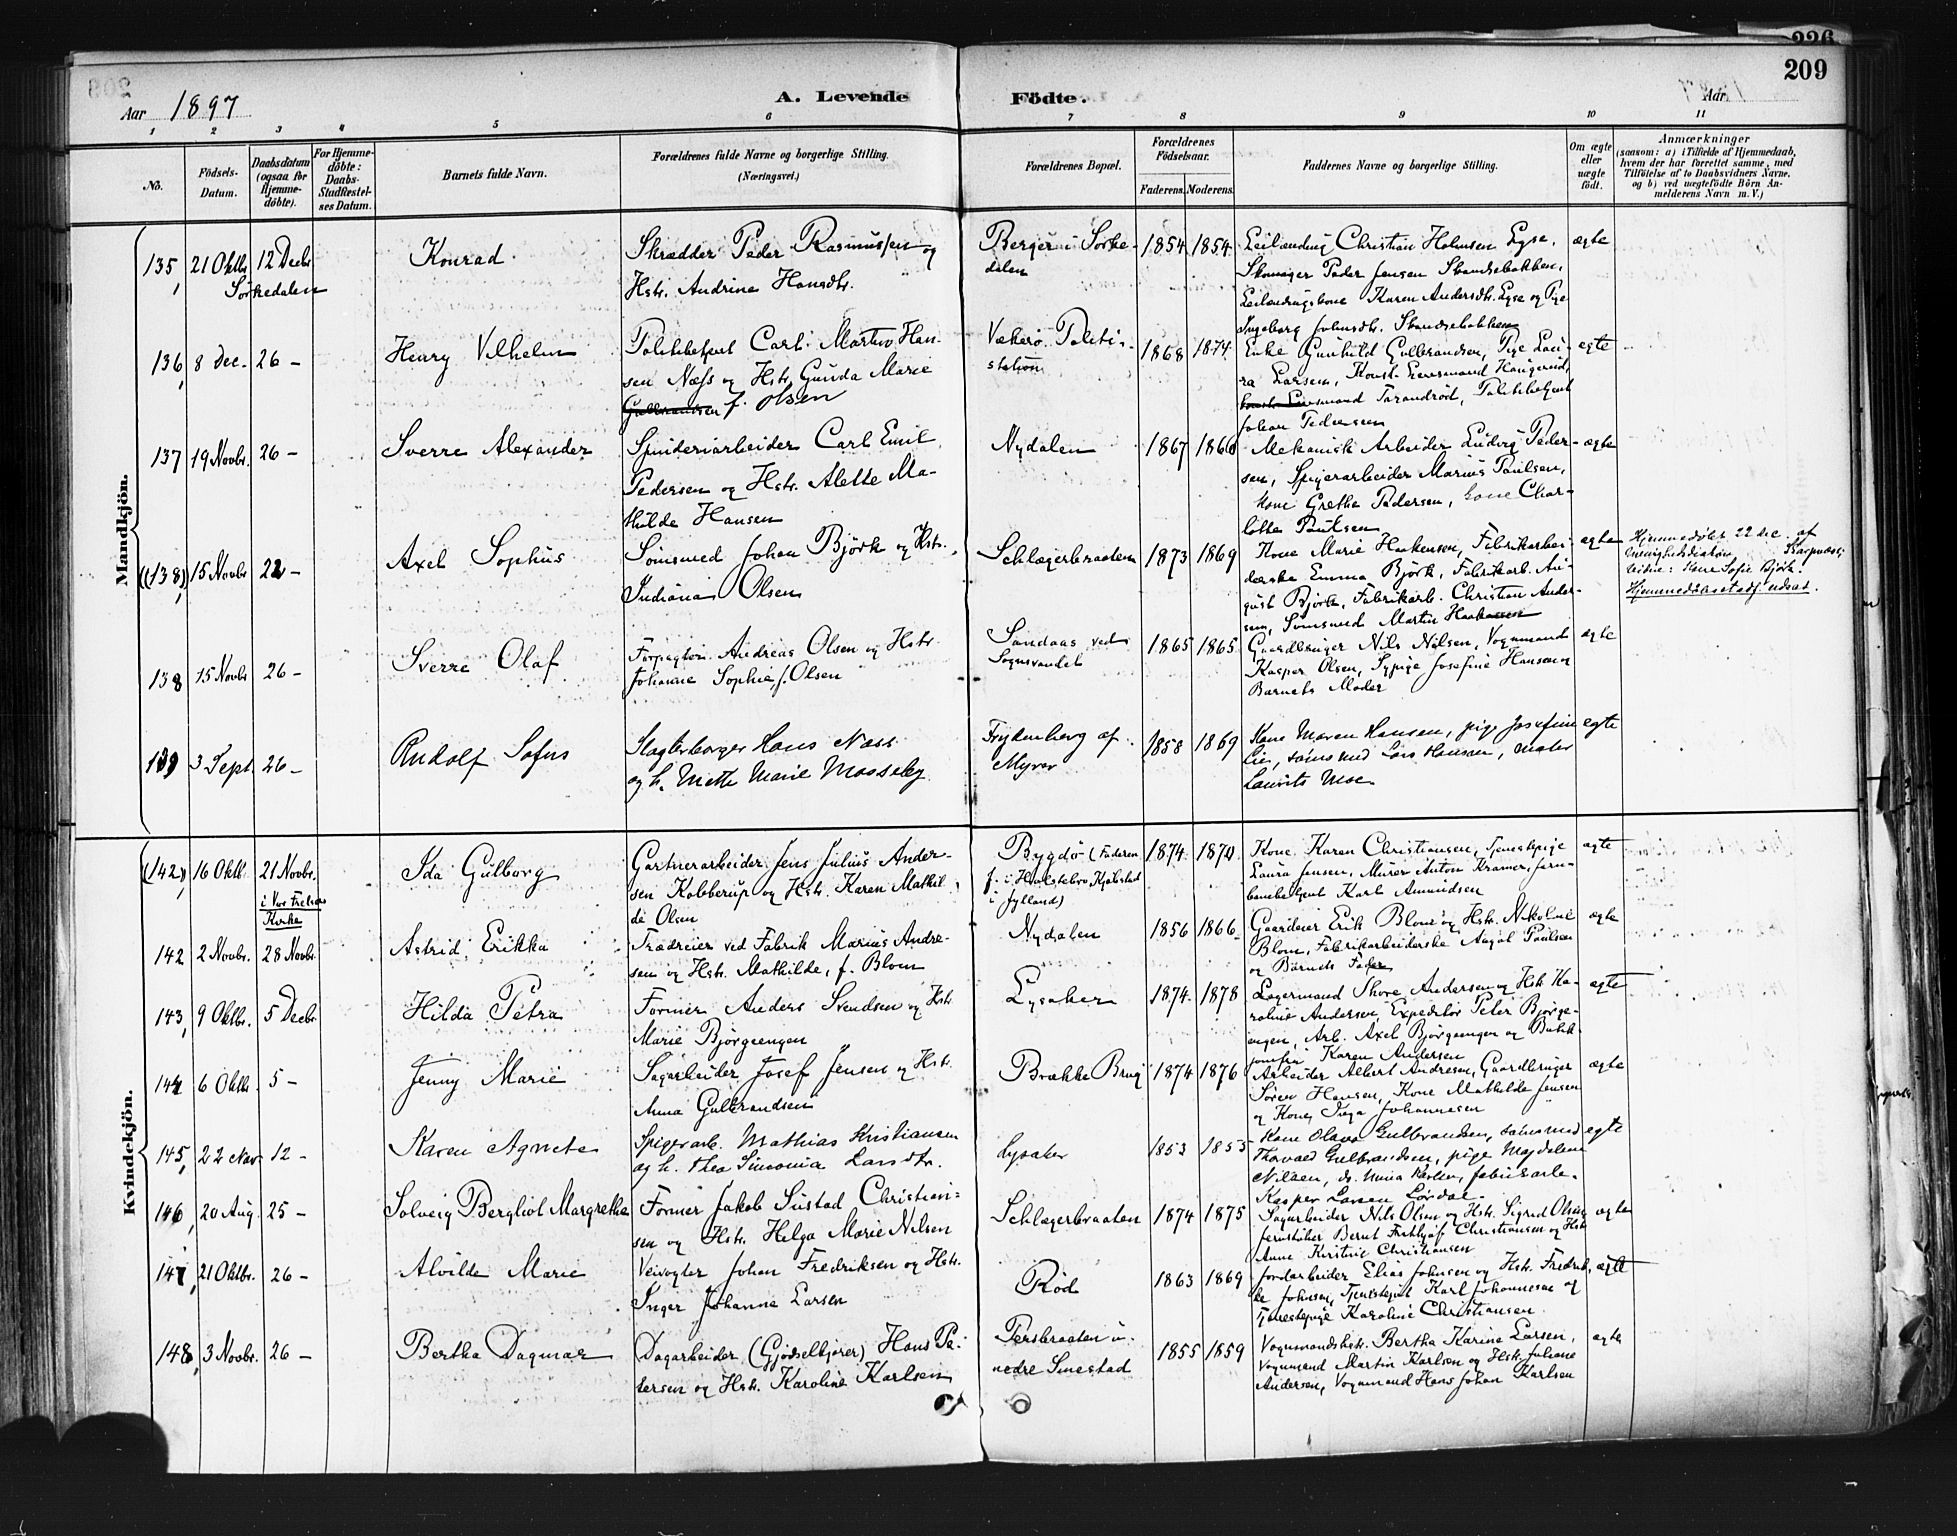 226
209
Aar 1897
A. Levende Födte.
Aar
1 2 3 4 5 6 7 8 9 10 11
No.
Födsels-Datum.
Daabsdatum (ogsaa for Hjemme-döbte).
For Hjemme-döbte: Daabs-Stadfæstel-ses Datum.
Barnets fulde Navn.
Forældrenes fulde Navne og borgerlige Stilling.
(Næringsvei.)
Forældrenes Bopæl.
Forældrenes Födselsaar.
Faderens. Moderens.
Faddernes Navne og borgerlige Stilling.
Om ægte eller uægte födt.
Anmærkninger
(saasom: a) i Tilfælde af Hjemmedaab,
hvem der har forrettet samme, med
Tilföielse af to Daabsvidners Navne,
og b) ved uægtefödte Börn An-
melderens Navn m. V.)
Mandkjön.
135, 21 Oktbr 12 Decbr
Sörkedalen
Konrad
Skrædder Peder Rasmussen og
Hstr. Andrine Hansdtr.
Berger i Sörke-
dalen
1854 1854
Leilænding Christian Holmsen Lyse,
Skomager Peder Jensen Skandsebakken,
Leilændingskone Karen Andersdtr. Lyse og Pige
Ingeborg Johnsdtr. Skandsebakken
ægte
136, 8 Dec. 26 –
Henry Vilhelm
Politibetjent Carl Martin Han-
sen Næss og Hstr. Gunda Marie
Gulbrandsen f. Olsen
Vækerö Politi-
station
1868 1874
Enke Gunhild Gulbrandsen, Pige Lovi-
ra Larsen, Konst. Lensmand Haugerud,
Tarandröd, Politibetjent
Johan Pedersen
egte
137 19 Novbr. 26 –
Sverre Alexander
Spinderiarbeider Carl Emil
Pedersen og Hstr. Alette Ma-
thilde Hansen
Nydalen
1867 1866
Mekanisk Arbeider Ludvig Peder-
sen, Spigerarbeider Marius Paulsen,
Kone Grethe Pedersen, Kone Char-
lotte Paulsen
ægte
(138), 15 Novbr 22 –
Axel Sophus
Sömsmed Johan Björk og Hstr.
Indiana Olsen
Schlægerbraaten
1873 1869
Kone Marie Haakensen, Fabrikarbei-
derske Emma Björk, Fabrikarb. Au-
gust Björk, Fabrikarb. Christian Ander-
sen, Sömsmed Martin Haakensen
ægte
Hjemmedöbt 22 dec. af
menighedsdiakon
vidne: Kone Sofie Björk.
Hjemmedåbsattest udsat.
138 15 Novbr 26 –
Sverre Olaf
Forpagter Andreas Olsen og Hstr.
Johanne Sophie f. Olsen
Sandaas ved
Sognsvandet
1865 1865
Gaardbruger Nils Nilsen, Vognmand
Kasper Olsen, Sypige Josefine Hansen og
Barnets Moder
ægte
139 3 Sept. 26 –
Rudolf Sofus
Slagterborger Hans Næss
og h. Mette Marie Mosseby
Frydenberg af
Myrer
1858 1869
Kone Maren Hansen, pige Josefine
Lie, sömsmed Lars Hansen, maler
Laurits Moe
egte
Kvindekjön.
(142), 16 Oktbr. 21 Novbr.
i Vor Frelsers Kirke
Ida Gulborg
Gartnerarbeider Jens Julius Ander-
sen Kobberup og Hstr. Karen Mathil-
de Olsen
Bygdö (Faderen
f. i Holstebro Kjöbstad
i Jylland)
1874 1870
Kone Karen Christiansen, Tjenestepige
Laura Jensen, Murer Anton Kramer, Jern-
banebetjent Karl Amundsen
ægte
142 2 Novbr. 28 Novbr.
Astrid Erikka
Trædreier ved Fabrik Marius Andre-
sen og Hstr. Mathilde, f. Blom
Nydalen
1856 1866
Gaardeier Erik Blom og Hstr. Nikoline
Blom, Fabrikarbeiderske Aagot Paulsen
og Barnets Fader
ægte
143, 9 Oktbr. 5 Decbr.
Hilda Petra
Former Anders Svendsen og Hstr.
Marie Björgeengen
Lysaker
1874 1878
Lagermand Thore Andersen og Hstr. Ka-
roline Andersen, Expeditör Peter Björge-
engen, Arb. Axel Björgeengen og Butik-
jomfru Karen Andersen
ægte
144 6 Oktbr. 5 –
Jenny Marie
Sagarbeider Josef Jensen og Hstr.
Anna Gulbrandsen
Brække Brug
1874 1876
Arbeider Albert Andresen, Gaardbruger
Sören Hansen, Kone Mathilde Jensen
og Kone Inga Johannesen
ægte
145, 22 Nov. 12 –
Karen Agnete
Spigerarb. Mathias Kristiansen
og h. Thea Simonia Larsdtr.
Lysaker
1853 1855
Kone Olava Gulbrandsen, sömsmed
Thorvald Gulbrandsen, pige Magdalene
Nilsen, ds. Maria Karlsen, fabrikarb.
Kasper Larsen Lördal
egte
146, 20 Aug. 25 –
Solveig Bergliot Margrethe
Former Jakob Sustad Christian-
sen og Hstr. Helga Marie Nilsen
Schlægerbraaten
1874 1875
Sagarbeider Nils Olsen og Hstr. Sigrid Olsen,
Jernstöber Bernt Frithjof Christiansen og Hstr
Anne Kirstine Christiansen
ægte
147, 21 Oktbr. 26 –
Alvilde Marie
Veivogter Johan Fredriksen og Hstr.
Inger Johanne Larsen
Röd
1863 1869
Jordarbeider Elias Johnsen og Hstr. Fredrik-
ke Johnsen, Tjenestegut Karl Johannesen og
Tjenestepige Karoline Christiansen
ægte
148, 3 Novbr. 26 –
Bertha Dagmar
Dagarbeider (Gjödselkjörer) Hans Pe-
tersen og Hstr. Karoline Karlsen
Persbraaten u.
nedre Smestad
1855 1859
Vognmandshstr. Bertha Karine Larsen,
Vognmand Martin Karlsen og Hstr. Juliane
Andersen, Vognmand Hans Johan Karlsen
ægte